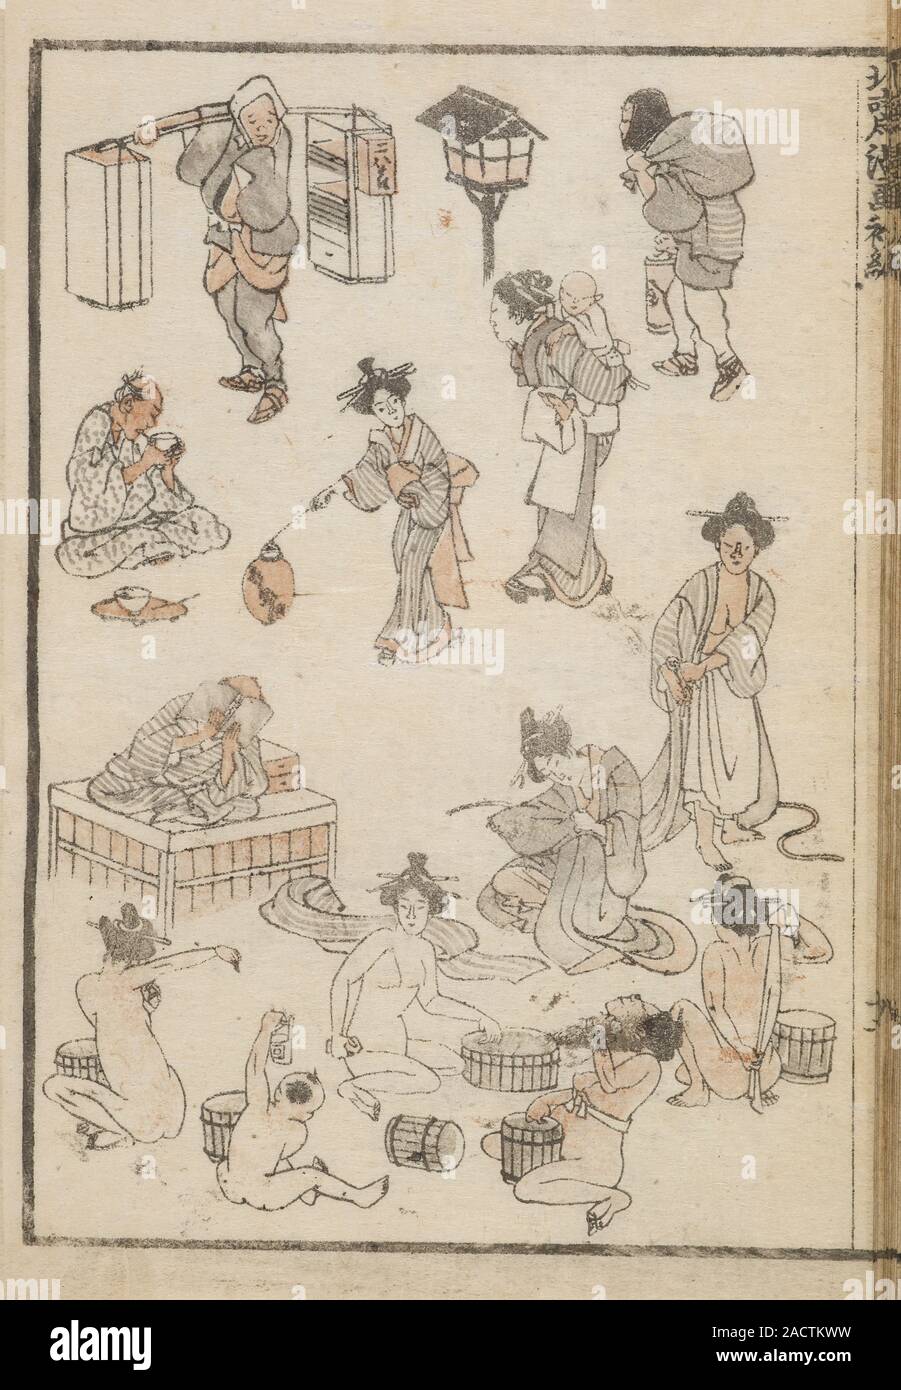 北斎漫画初編
二八そば
alamy
Image ID: 2ACTKWW
www.alamy.com